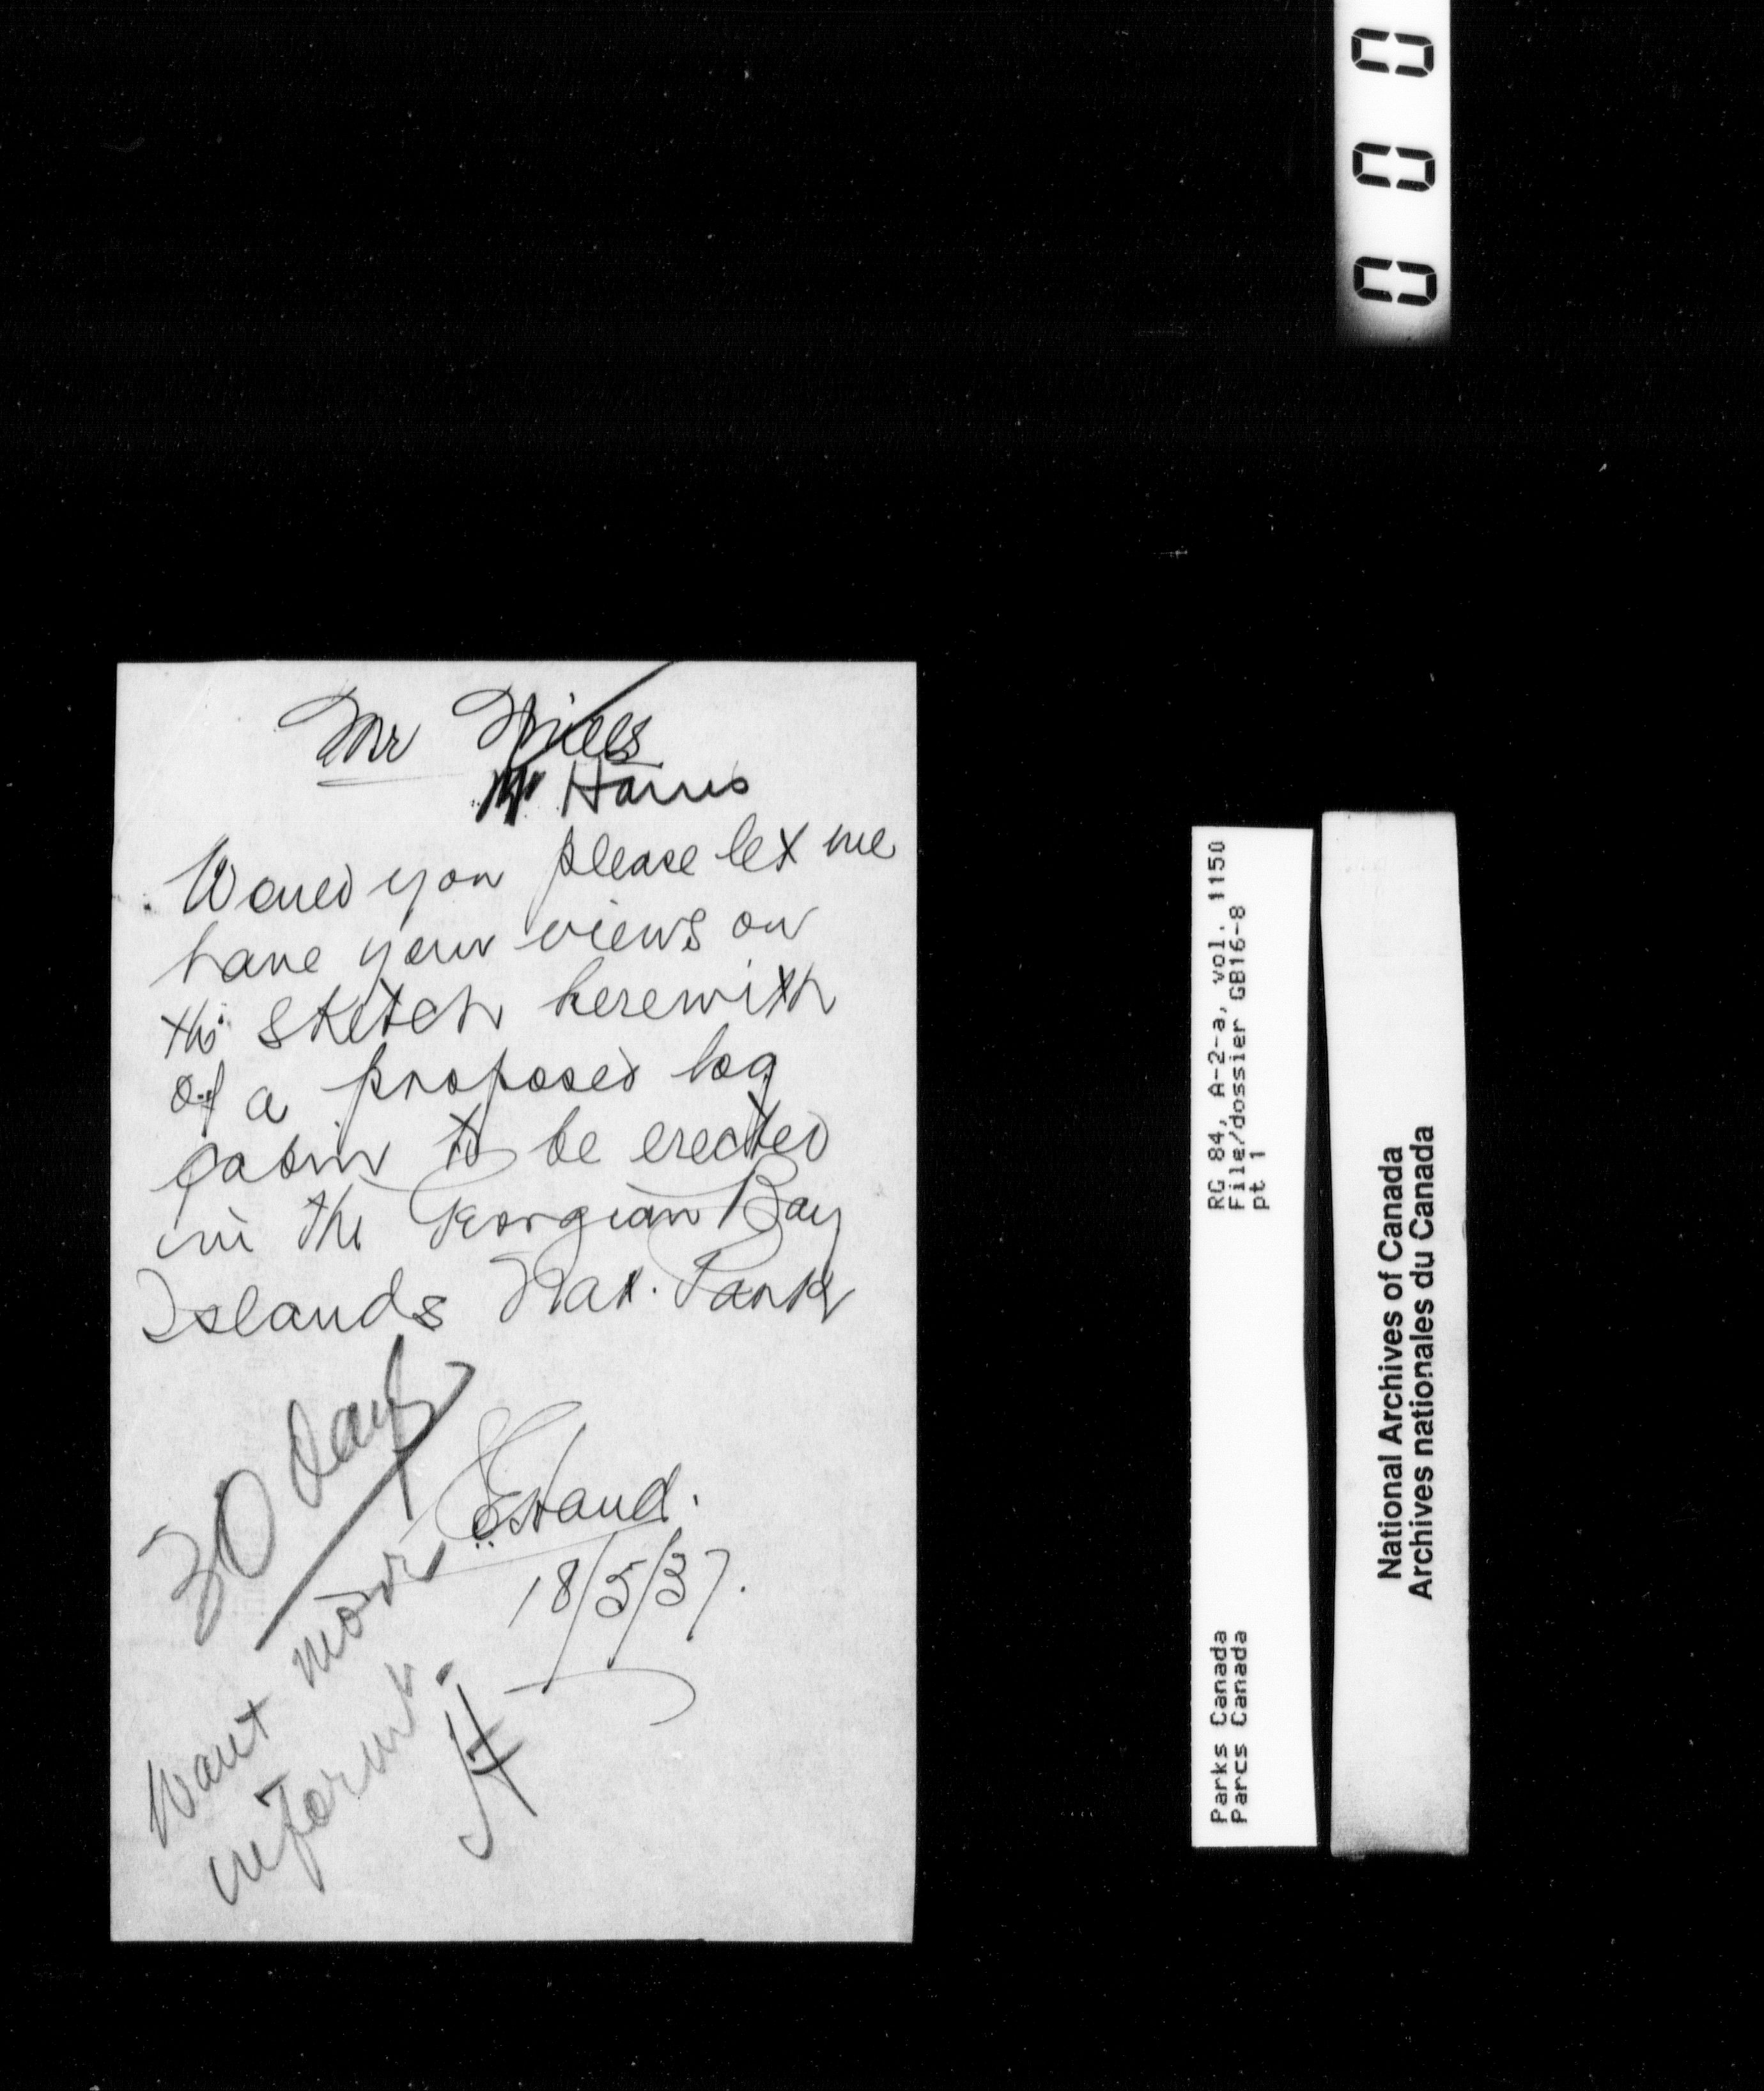 Mr Mills
Mr Harris
Would you please let me
have your views on
the sketch herewith
of a proposed log
cabin to be erected
in the Georgian Bay
Islands Nat. Park
30 days
18/5/37.
Want more
inform.
H
000
RG 84, A-2-a, vol. 1150
File/dossier GB16-8
pt 1
Parks Canada
Parcs Canada
National Archives of Canada
Archives nationales du Canada